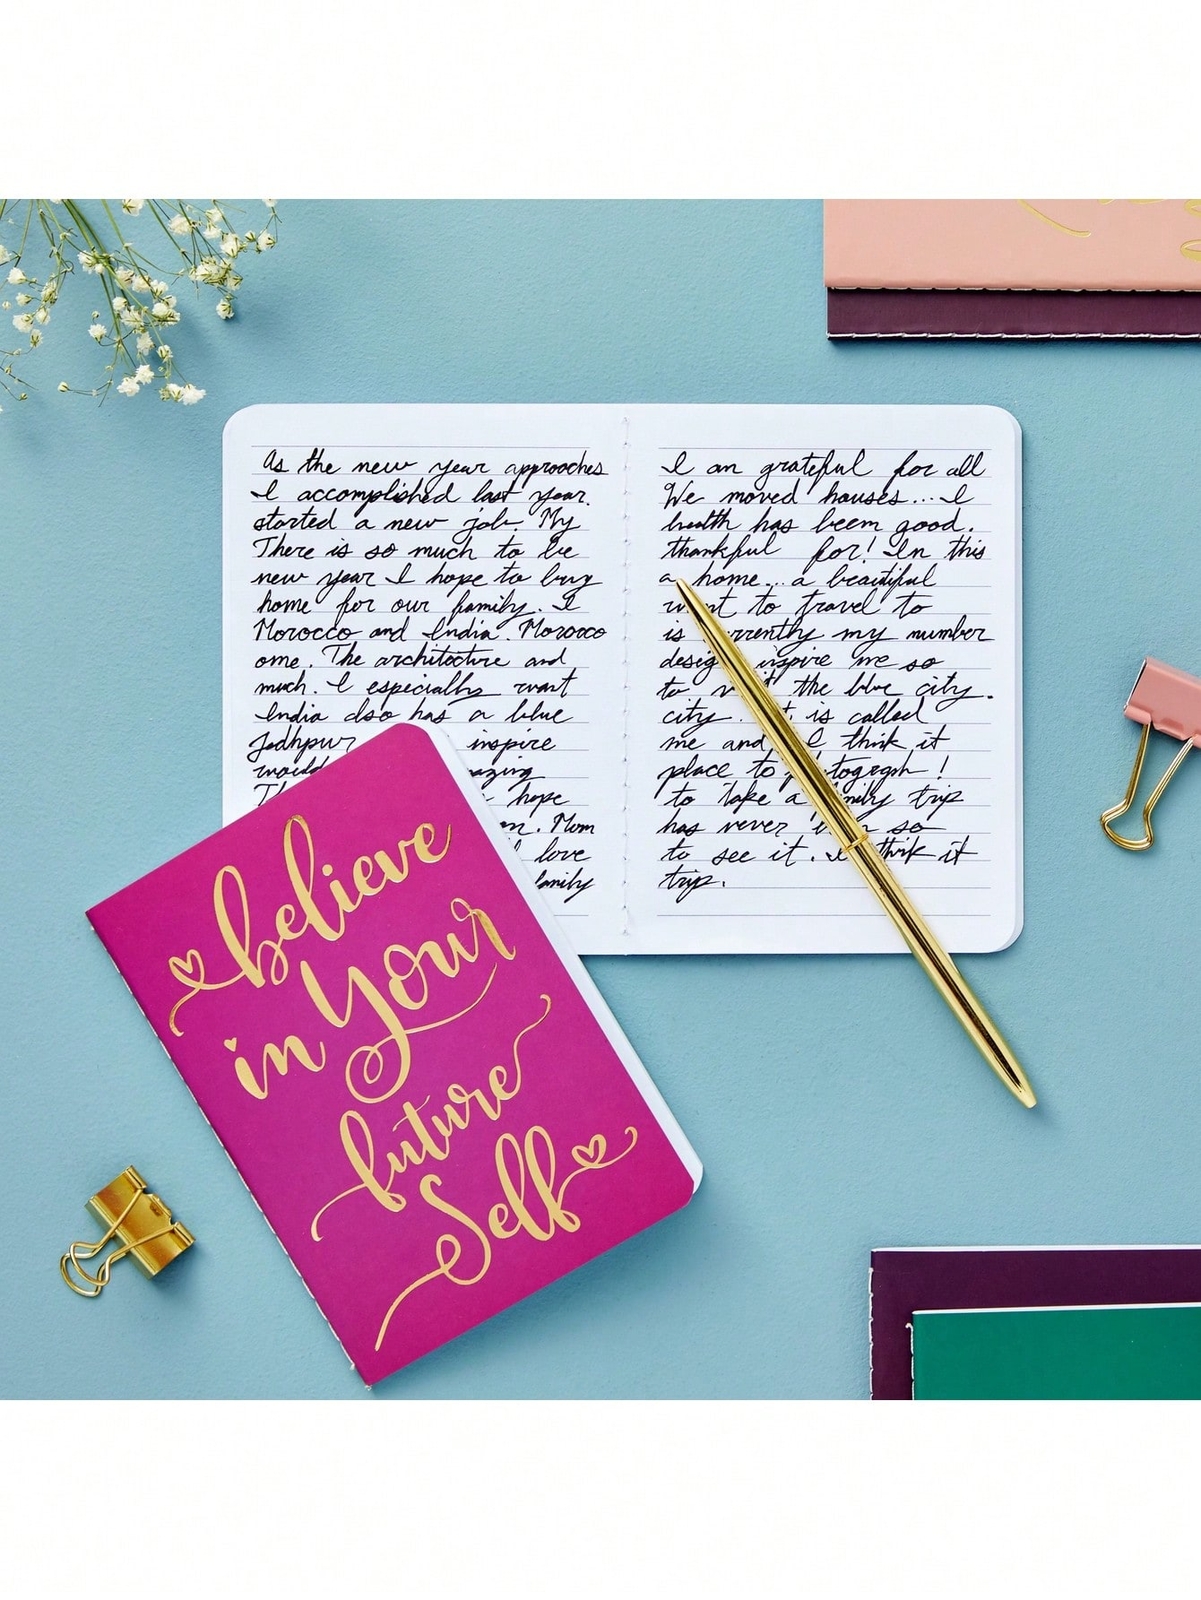 As the new year approaches
I accomplished last year.
started a new job. My
There is so much to be
new year I hope to buy
home for our family. I
Morocco and India. Morocco
ome. The architecture and
much. I especially want
India also has a blue
Jodhpur inspire
would
hope
Mom
love
family
I am grateful for all
We moved houses... I
health has been good.
thankful for! In this
a home... a beautiful
want to travel to
is currently my number
design inspire me so
to visit the blue city.
city. It is called
me and I think it
place to photograph!
to take a family trip
has never been so
to see it. I think it
trip.
believe
in your
future
Self